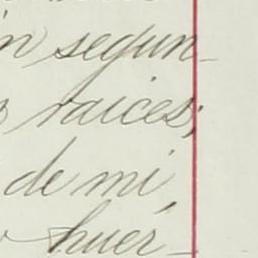 n segun-
raices;
de mi
huér-